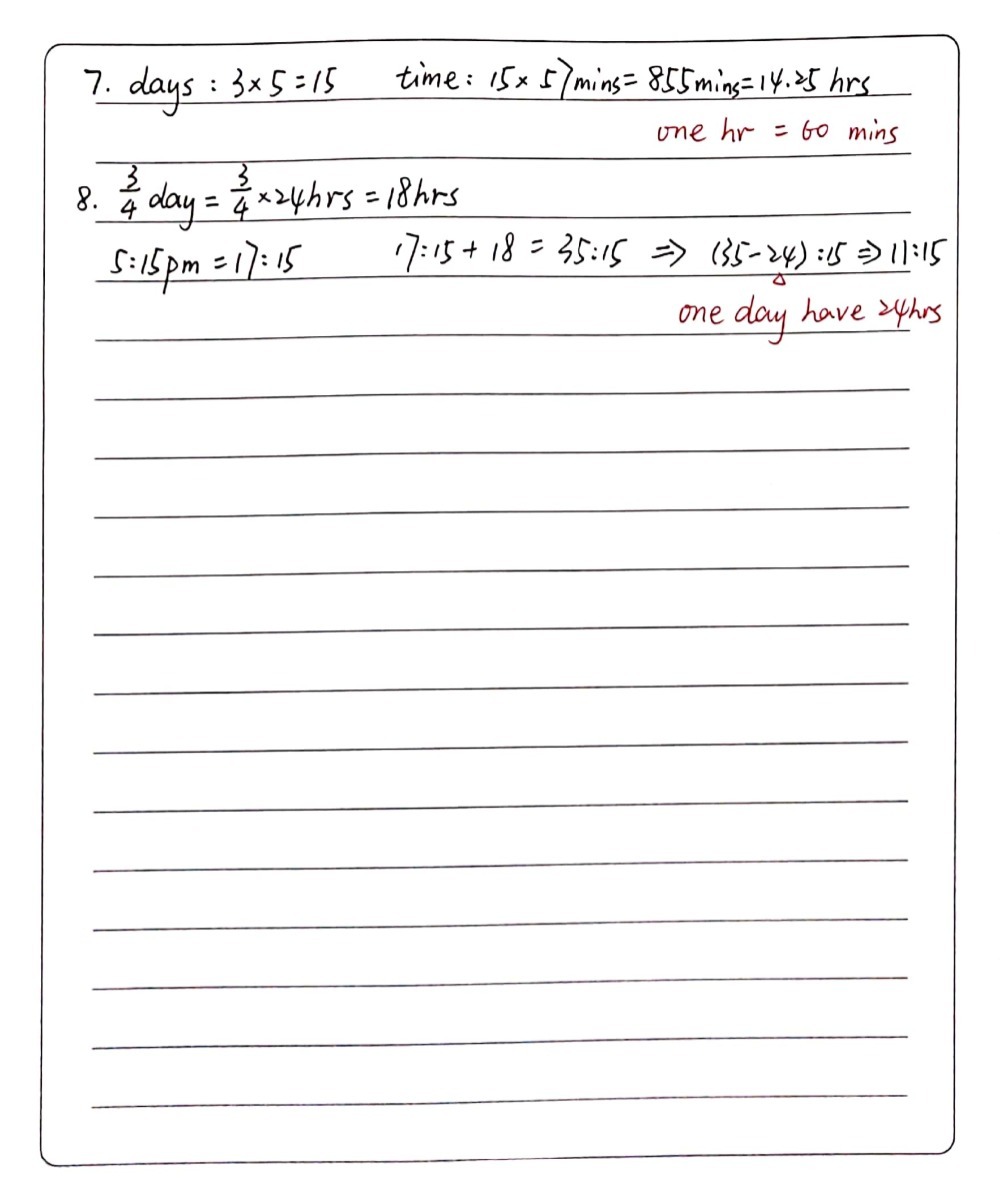 7. days : 3×5=15 time: 15×57mins=855mins=14.25 hrs
one hr = 60 mins
8. 3/4 day = 3/4 ×24hrs = 18hrs
5:15pm = 17:15 17:15 + 18 = 35:15 ⇒ (35-24) :15 ⇒ 11:15
one day have 24hrs